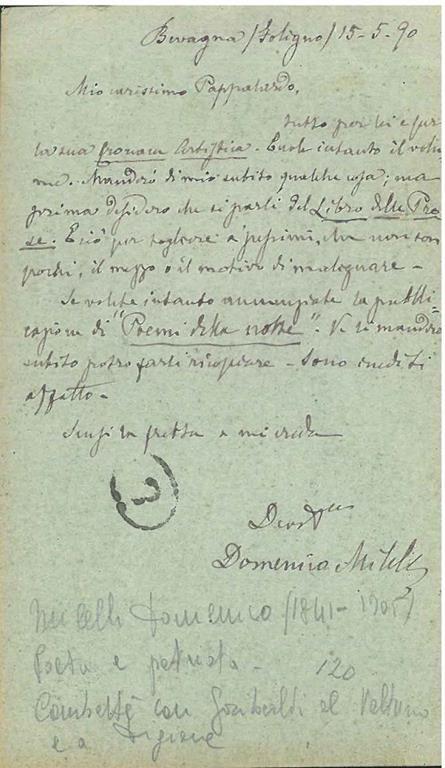 Bevagna (Foligno) 15-5-90
Mio carissimo Pappalardo,
tutto per lei e per
la sua Cronaca Artistica. Eccole intanto il volu
me. Manderò di mio subito qualche cosa; ma
prima desidero che si parli del Libro delle Pro
se. E ciò per togliere a' pessimi, che non son
pochi, il mezzo o il motivo di malignare -
Se volete intanto annunziate la pubbli-
cazione di "Poemi della notte". Ve li manderò
subito potrò farli ricopiare - Sono inediti
affatto -
Scusi la fretta e mi creda
3
Dev.
Domenico Milelli
Milelli Domenico (1841-1905)
Poeta e patriota - 120
Combatté con Garibaldi al Volturno
e a Digione